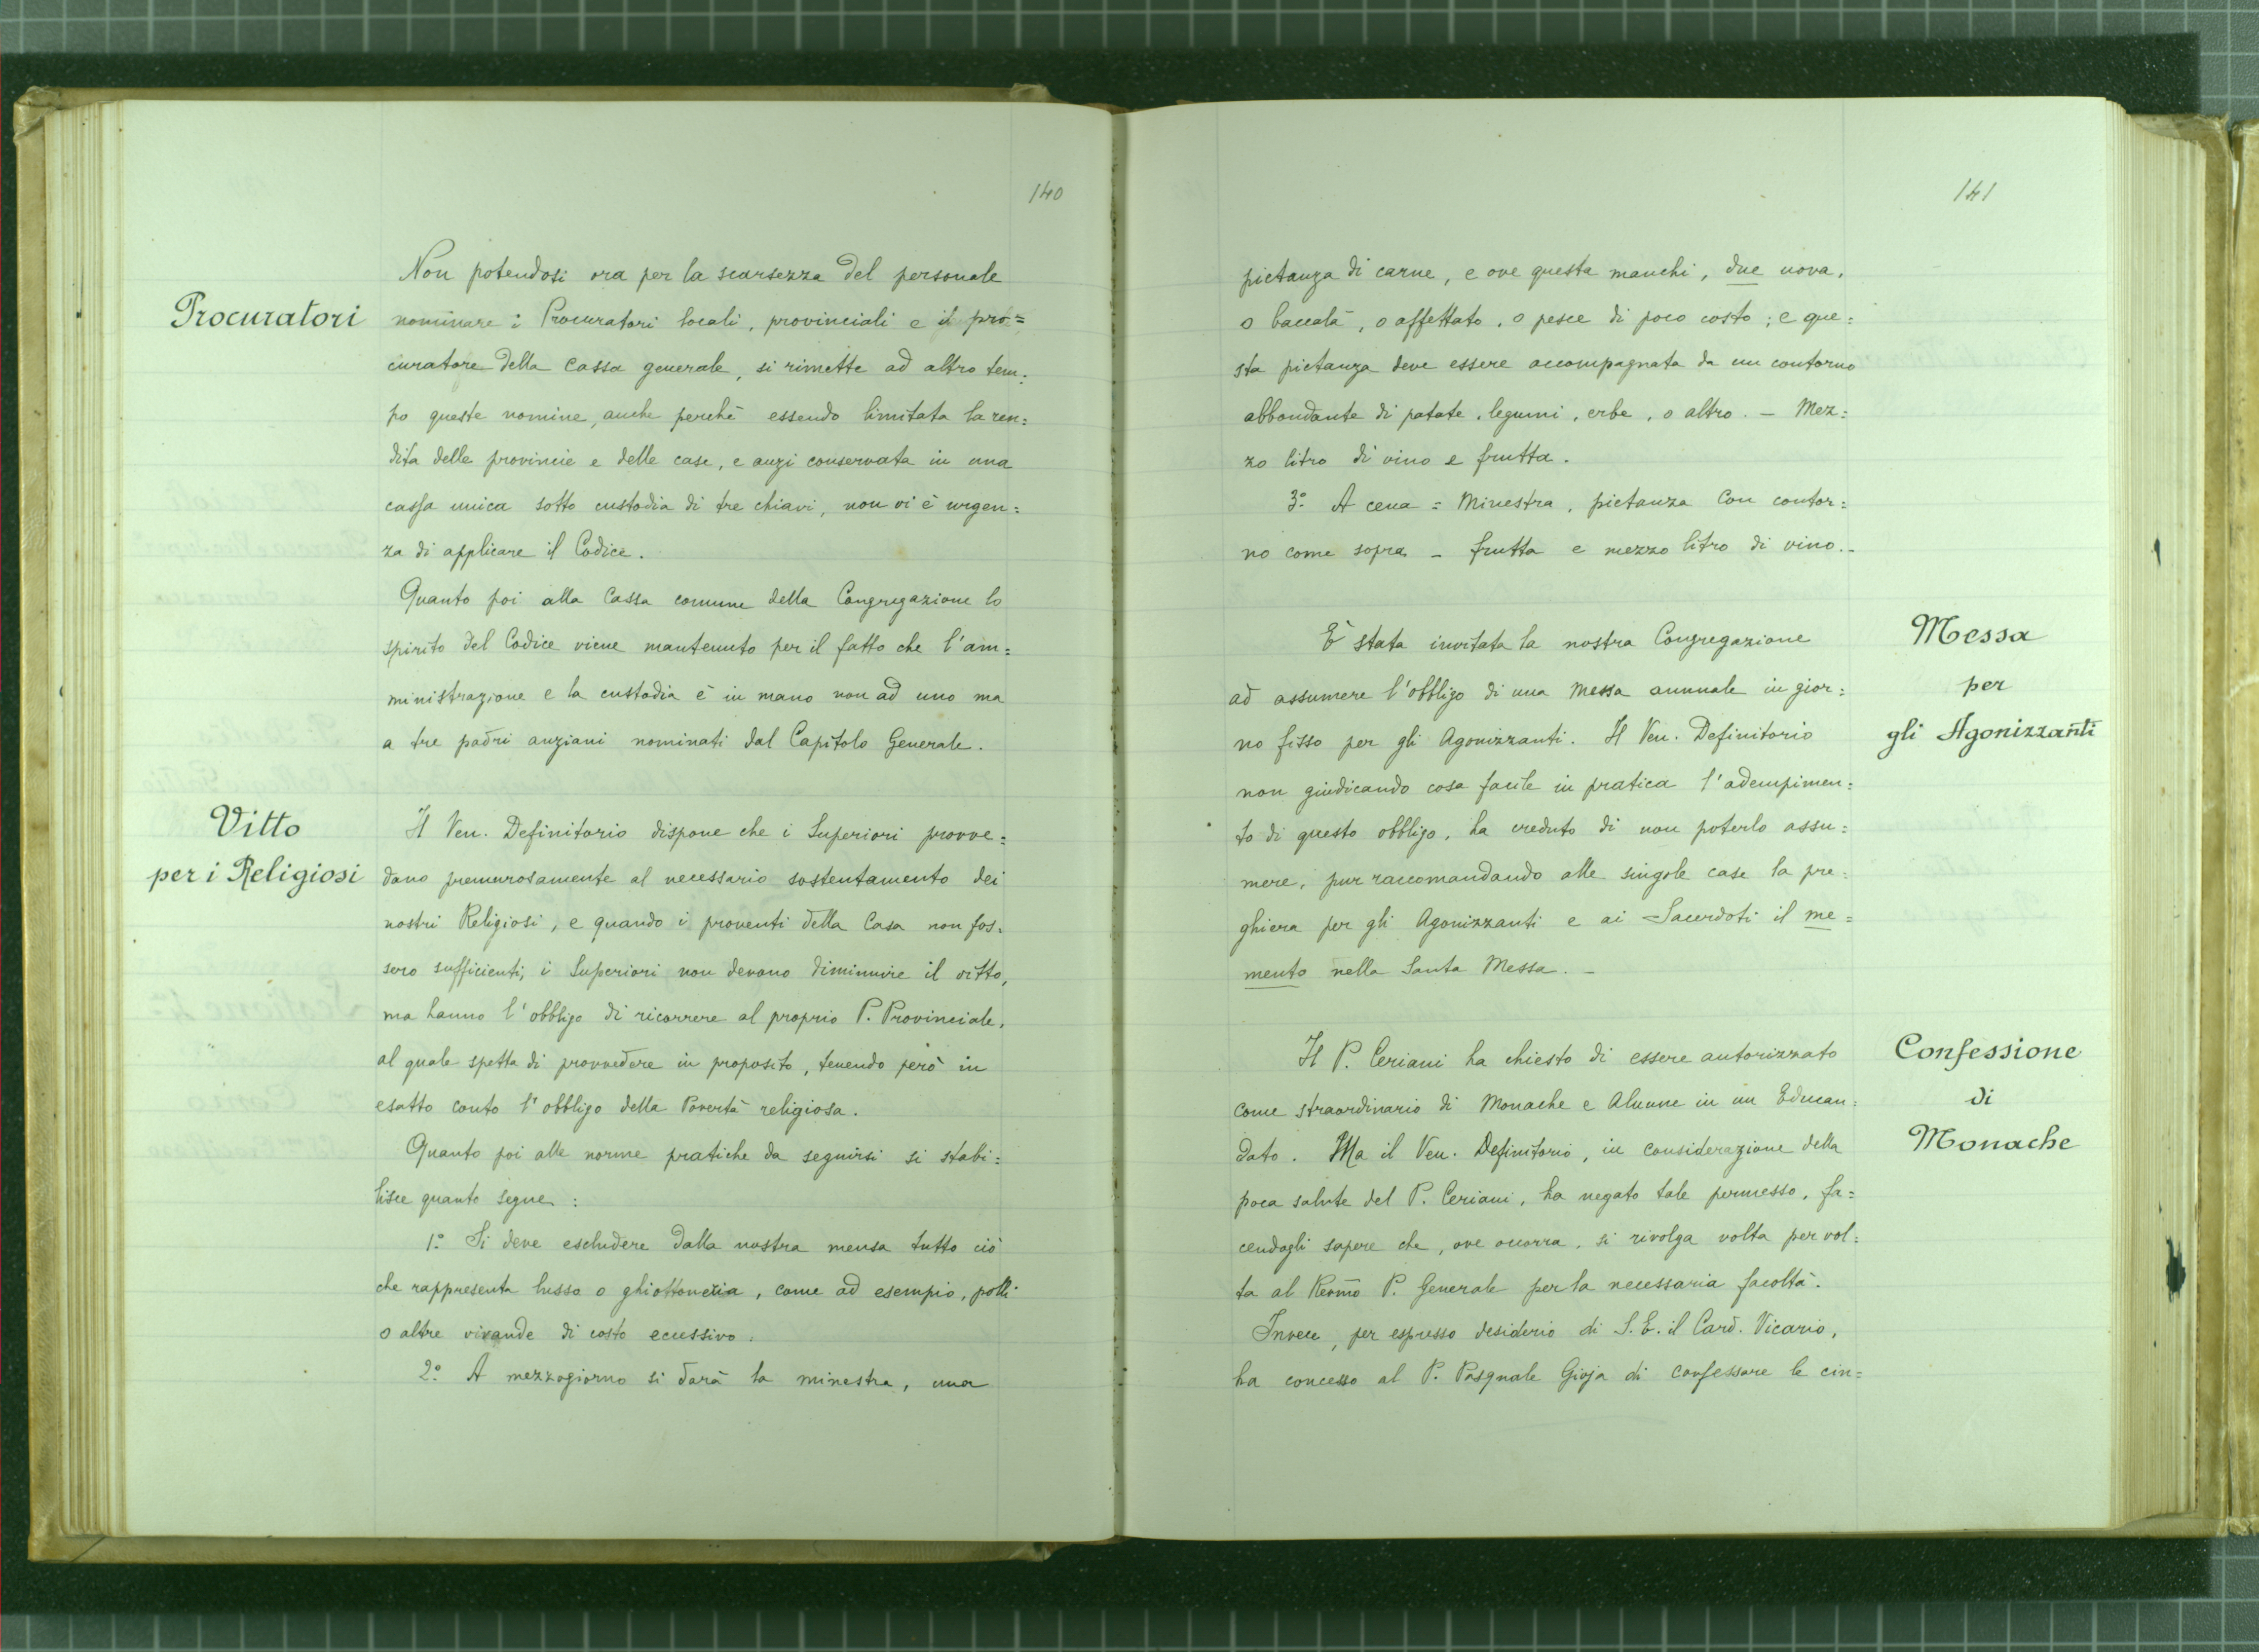 140
Procuratori
Non potendosi ora per la scarsezza del personale
nominare i Procuratori locali, provinciali e il pro=
curatore della Cassa generale, si rimette ad altro tem=
po queste nomine, anche perchè essendo limitata la ren=
dita delle provincie e delle case, e anzi conservata in una
cassa unica sotto custodia di tre chiavi, non vi è urgen=
za di applicare il Codice.
Quanto poi alla Cassa comune della Congregazione lo
spirito del Codice viene mantenuto per il fatto che l'am=
ministrazione e la custodia è in mano non ad uno ma
a tre padri anziani nominati dal Capitolo Generale.
Vitto
per i Religiosi
Il Ven. Definitorio dispone che i Superiori provve=
dano premurosamente al necessario sostentamento dei
nostri Religiosi, e quando i proventi della Casa non fos=
sero sufficienti, i Superiori non devono diminuire il vitto,
ma hanno l'obbligo di ricorrere al proprio P. Provinciale,
al quale spetta di provvedere in proposito, tenendo però in
esatto conto l'obbligo della Povertà religiosa.
Quanto poi alle norme pratiche da seguirsi si stabi=
lisce quanto segue:
1.° Si deve escludere dalla nostra mensa tutto ciò
che rappresenta lusso o ghiottoneria, come ad esempio, polli
o altre vivande di costo ecessivo.
2.° A mezzogiorno si darà la minestra, una
141
pietanza di carne, e ove questa manchi, due uova,
o baccalà, o affettato, o pesce di poco costo; e que=
sta pietanza deve essere accompagnata da un contorno
abbondante di patate, legumi, erbe, o altro. - Mez=
zo litro di vino e frutta.
3.° A cena = Minestra, pietanza con contor=
no come sopra - frutta e mezzo litro di vino. -
Messa
per
gli Agonizzanti
È stata invitata la nostra Congregazione
ad assumere l'obbligo di una Messa annuale in gior=
no fisso per gli Agonizzanti. Il Ven. Definitorio
non giudicando cosa facile in pratica l'adempimen=
to di questo obbligo, ha creduto di non poterlo assu=
mere, pur raccomandando alle singole case la pre=
ghiera per gli Agonizzanti e ai Sacerdoti il me=
mento nella Santa Messa. -
Confessione
di
Monache
Il P. Ceriani ha chiesto di essere autorizzato
come straordinario di Monache e Alunne in un Educan=
dato. Ma il Ven. Definitorio, in considerazione della
poca salute del P. Ceriani, ha negato tale permesso, fa=
cendogli sapere che, ove occorra, si rivolga volta per vol=
ta al Revmo P. Generale per la necessaria facoltà.
Invece, per espresso desiderio di S. E. il Card. Vicario,
ha concesso al P. Pasquale Gioja di confessare le cin=